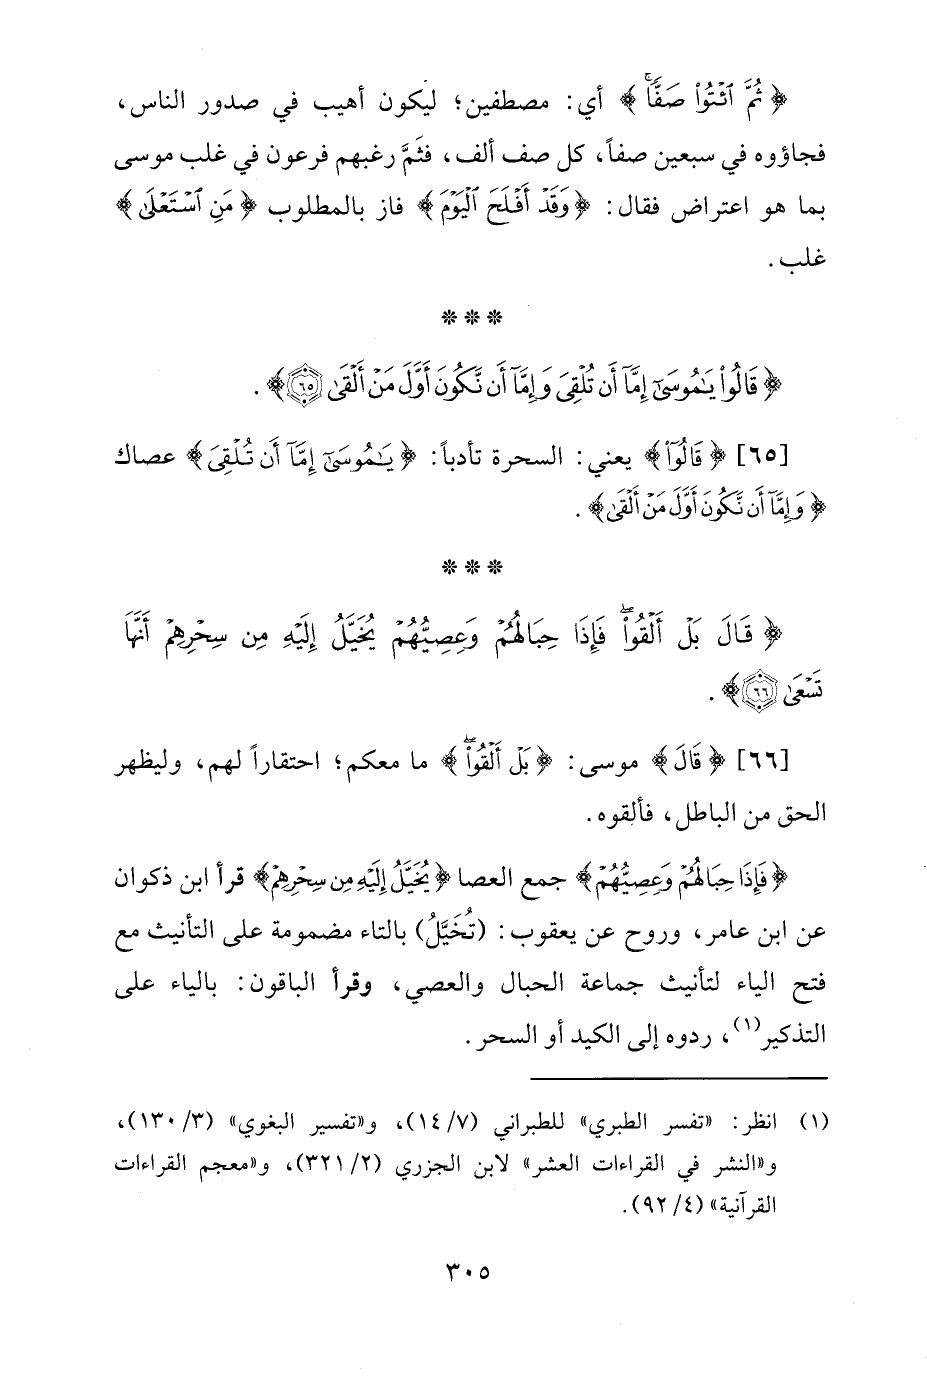 ﴿ثُمَّ ٱئْتُوا۟ صَفًّا ۚ﴾ أي: مصطفين؛ ليكون أهيب في صدور الناس،
فجاؤوه في سبعين صفاً، كل صف ألف، فثَمَّ رغبهم فرعون في غلب موسى
بما هو اعتراض فقال: ﴿وَقَدْ أَفْلَحَ ٱلْيَوْمَ﴾ فاز بالمطلوب ﴿مَنِ ٱسْتَعْلَىٰ﴾
غلب.
***
﴿قَالُوا۟ يَـٰمُوسَىٰٓ إِمَّآ أَن تُلْقِىَ وَإِمَّآ أَن نَّكُونَ أَوَّلَ مَنْ أَلْقَىٰ ٦٥﴾.
[٦٥] ﴿قَالُوا۟﴾ يعني: السحرة تأدباً: ﴿يَـٰمُوسَىٰٓ إِمَّآ أَن تُلْقِىَ﴾ عصاك
﴿وَإِمَّآ أَن نَّكُونَ أَوَّلَ مَنْ أَلْقَىٰ﴾.
***
﴿قَالَ بَلْ أَلْقُوا۟ ۖ فَإِذَا حِبَالُهُمْ وَعِصِيُّهُمْ يُخَيَّلُ إِلَيْهِ مِن سِحْرِهِمْ أَنَّهَا
تَسْعَىٰ ٦٦﴾.
[٦٦] ﴿قَالَ﴾ موسى: ﴿بَلْ أَلْقُوا۟ ۖ﴾ ما معكم؛ احتقاراً لهم، وليظهر
الحق من الباطل، فألقوه.
﴿فَإِذَا حِبَالُهُمْ وَعِصِيُّهُمْ﴾ جمع العصا ﴿يُخَيَّلُ إِلَيْهِ مِن سِحْرِهِمْ﴾ قرأ ابن ذكوان
عن ابن عامر، وروح عن يعقوب: (تُخَيَّلُ) بالتاء مضمومة على التأنيث مع
فتح الياء لتأنيث جماعة الحبال والعصي، وقرأ الباقون: بالياء على
التذكير(١)، ردوه إلى الكيد أو السحر.
(١) انظر: «تفسر الطبري» للطبراني (٧/ ١٤)، و«تفسير البغوي» (٣/ ١٣٠)،
و«النشر في القراءات العشر» لابن الجزري (٢/ ٣٢١)، و«معجم القراءات
القرآنية» (٤/ ٩٢).
٣٠٥